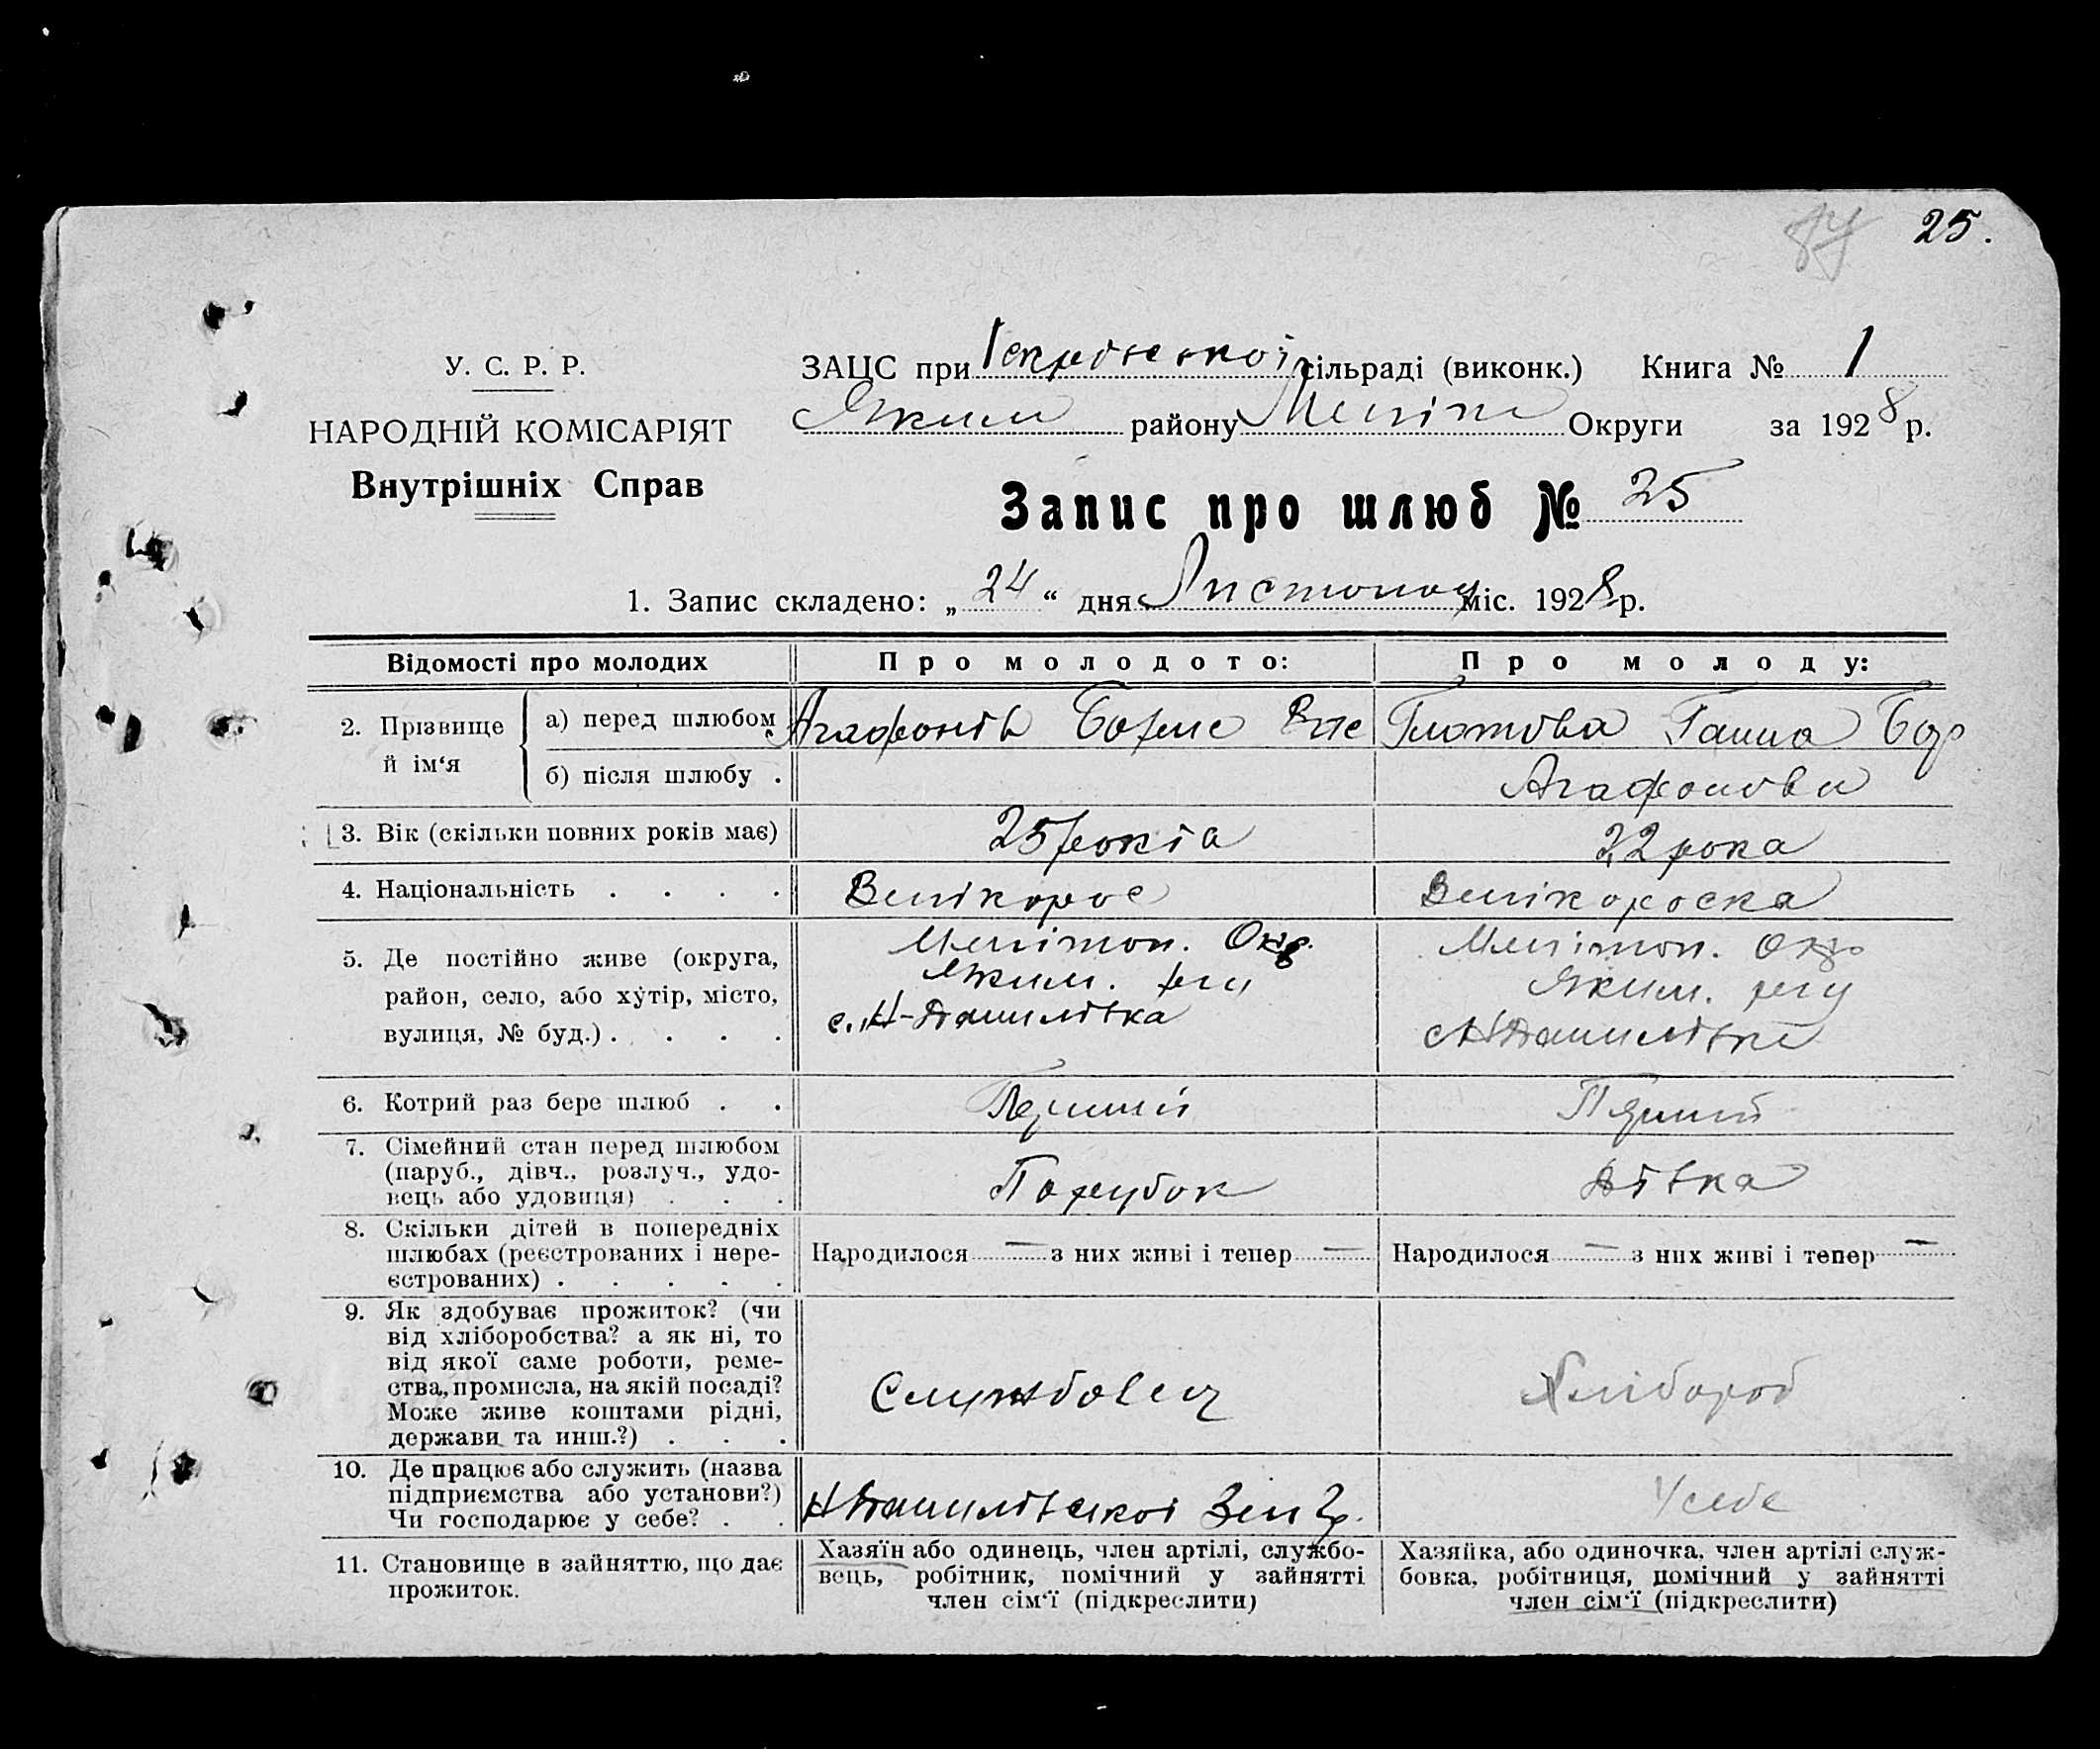 25.
У. С. Р. Р.
НАРОДНІЙ КОМІСАРІЯТ
Внутрішніх Справ
ЗАЦС при сільраді (виконк.) Книга № 1
Яким району Меліт Округи за 1928 р.
Запис про шлюб № 25
1. Запис складено: „24“ дня Листопад міс. 1928 р.
Відомості про молодих
Про молодого:
Про молоду:
2. Прізвище й ім‘я
а) перед шлюбом
Агафонів Борис
Глотова Ганна
б) після шлюбу .
Агафонова
3. Вік (скільки повних років має)
25 років
22 рока
4. Національність . . . .
Велікорос
Велікороска
5. Де постійно живе (округа,
район, село, або хутір, місто,
вулиця, № буд.) . . . .
Мелітоп. Окр.
Яким. р-ну
с. Н-Данилівка
Мелітоп. Окр
Яким. р-ну
с Н Данилівка
6. Котрий раз бере шлюб . .
Перший
Перший
7. Сімейний стан перед шлюбом
(паруб., дівч., розлуч., удо-
вець або удовиця) . . .
Парубок
Дівка
8. Скільки дітей в попередніх
шлюбах (реєстрованих і нере-
єстрованих) . . . . .
Народилося — з них живі і тепер —
Народилося — з них живі і тепер —
9. Як здобуває прожиток? (чи
від хліборобства? а як ні, то
від якої саме роботи, реме-
ства, промисла, на якій посаді?
Може живе коштами рідні,
держави та инш.?) . . .
Службовец
Хлібороб
10. Де працює або служить (назва
підприємства або установи?)
Чи господарює у себе? . .
Н Данилівської Зем
У себе
11. Становище в зайняттю, що дає
прожиток.
Хазяїн або одинець, член артілі, службо-
вець, робітник, помічний у зайнятті
член сім‘ї (підкреслити)
Хазяйка, або одиночка, член артілі служ-
бовка, робітниця, помічний у зайнятті
член сім‘ї (підкреслити)